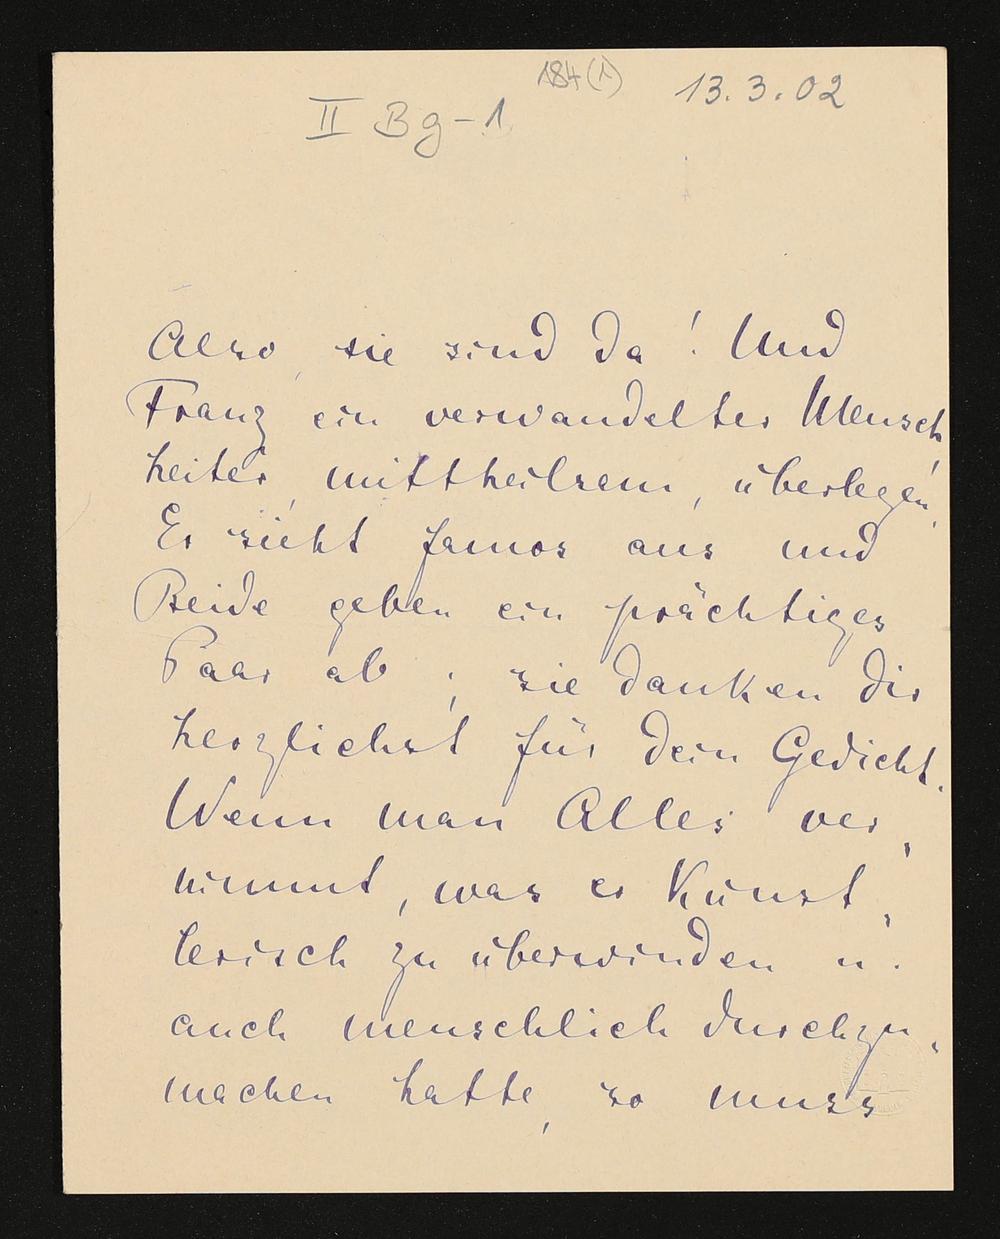 184(1)
13.3.02
II Bg-1
Also, sie sind da! Und
Franz ein verwandelter Mensch,
heiter, mittheilsam, überlegen.
Er sieht famos aus und
Beide geben ein prächtiges
Paar ab; sie danken dir
herzlichst für dein Gedicht.
Wenn man Alles ver-
nimmt, was er Künst-
lerisch zu überwinden u.
auch menschlich durchzu-
machen hatte, so muss